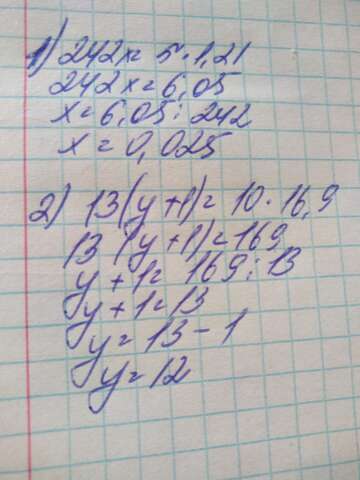 1) 242x = 5 · 1,21
242x = 6,05
x = 6,05 : 242
x = 0,025
2) 13(y+1) = 10 · 16,9
13(y+1) = 169
y + 1 = 169 : 13
y + 1 = 13
y = 13 - 1
y = 12